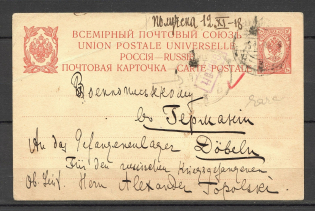 Получена 12 XI-18
ВСЕМІРНЫЙ ПОЧТОВЫЙ СОЮЗЪ
UNION POSTALE UNIVERSELLE
РОССІЯ - RUSSIE
ПОЧТОВАЯ КАРТОЧКА - CARTE POSTALE
Военноплѣнному
въ Германіи
An das Gefangenenlager Döbeln
Für den russischen Kriegsgefangenen
Ob. Herrn Alexander Topolski